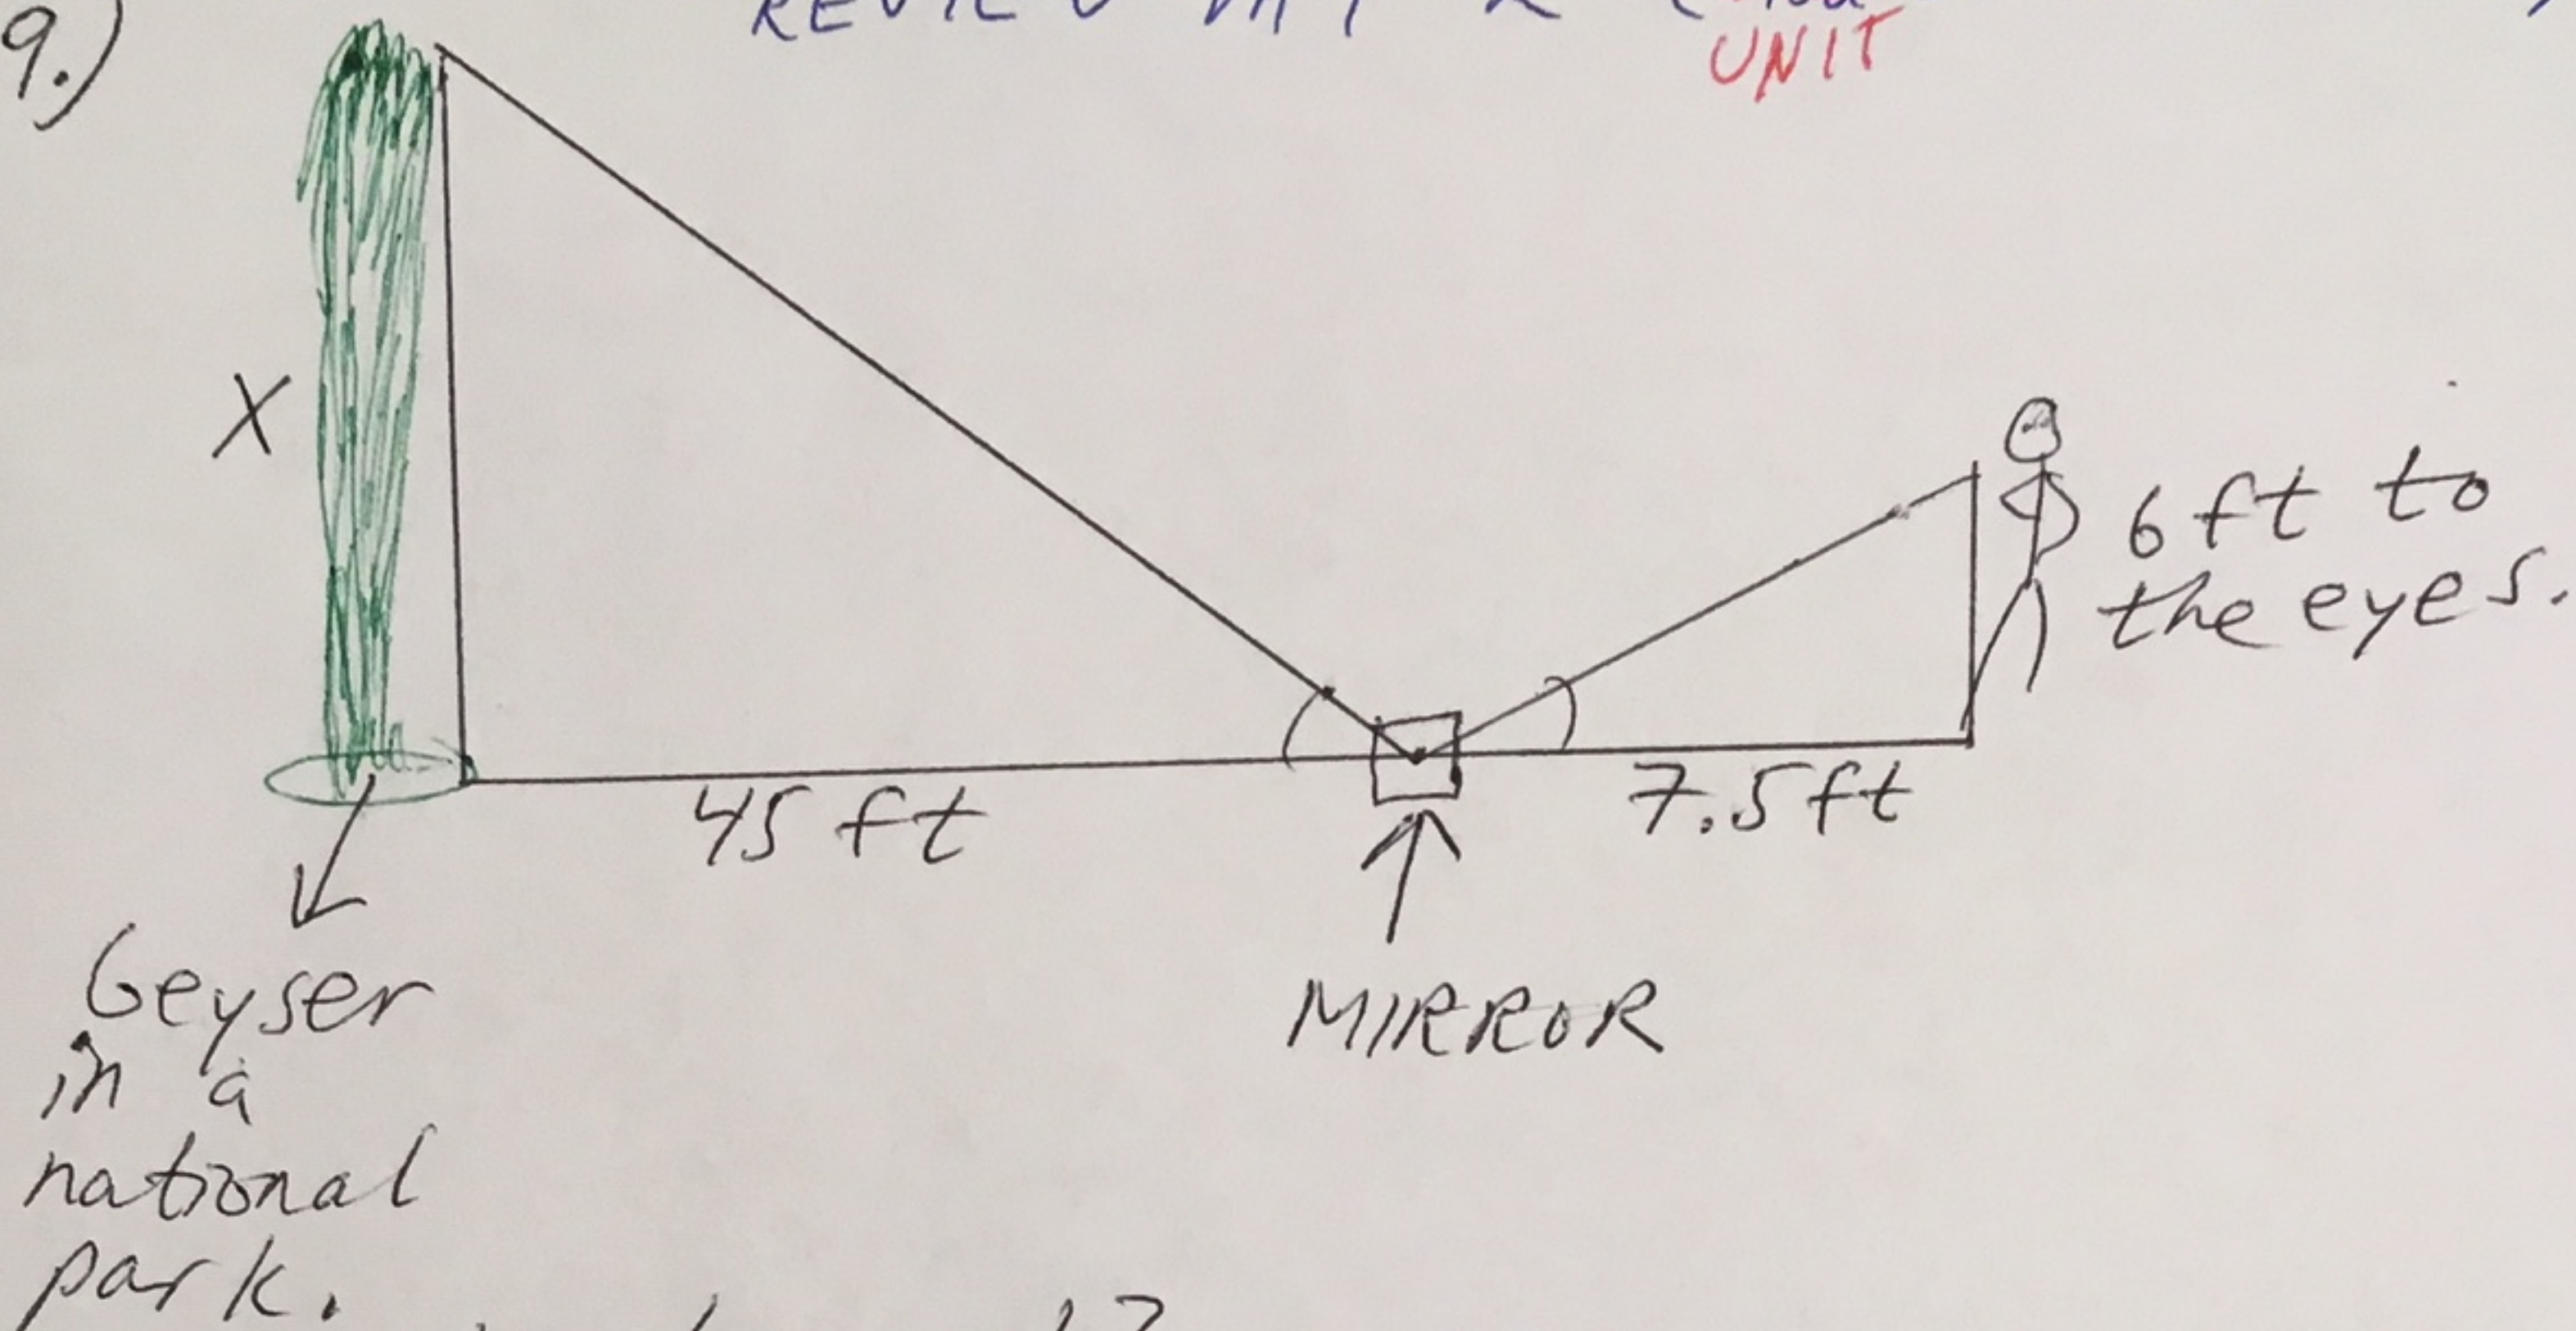 9.)
REVIEW DAY 2
UNIT
X
6 ft to
the eyes.
45 ft
7.5 ft
MIRROR
Geyser
in a
national
park.